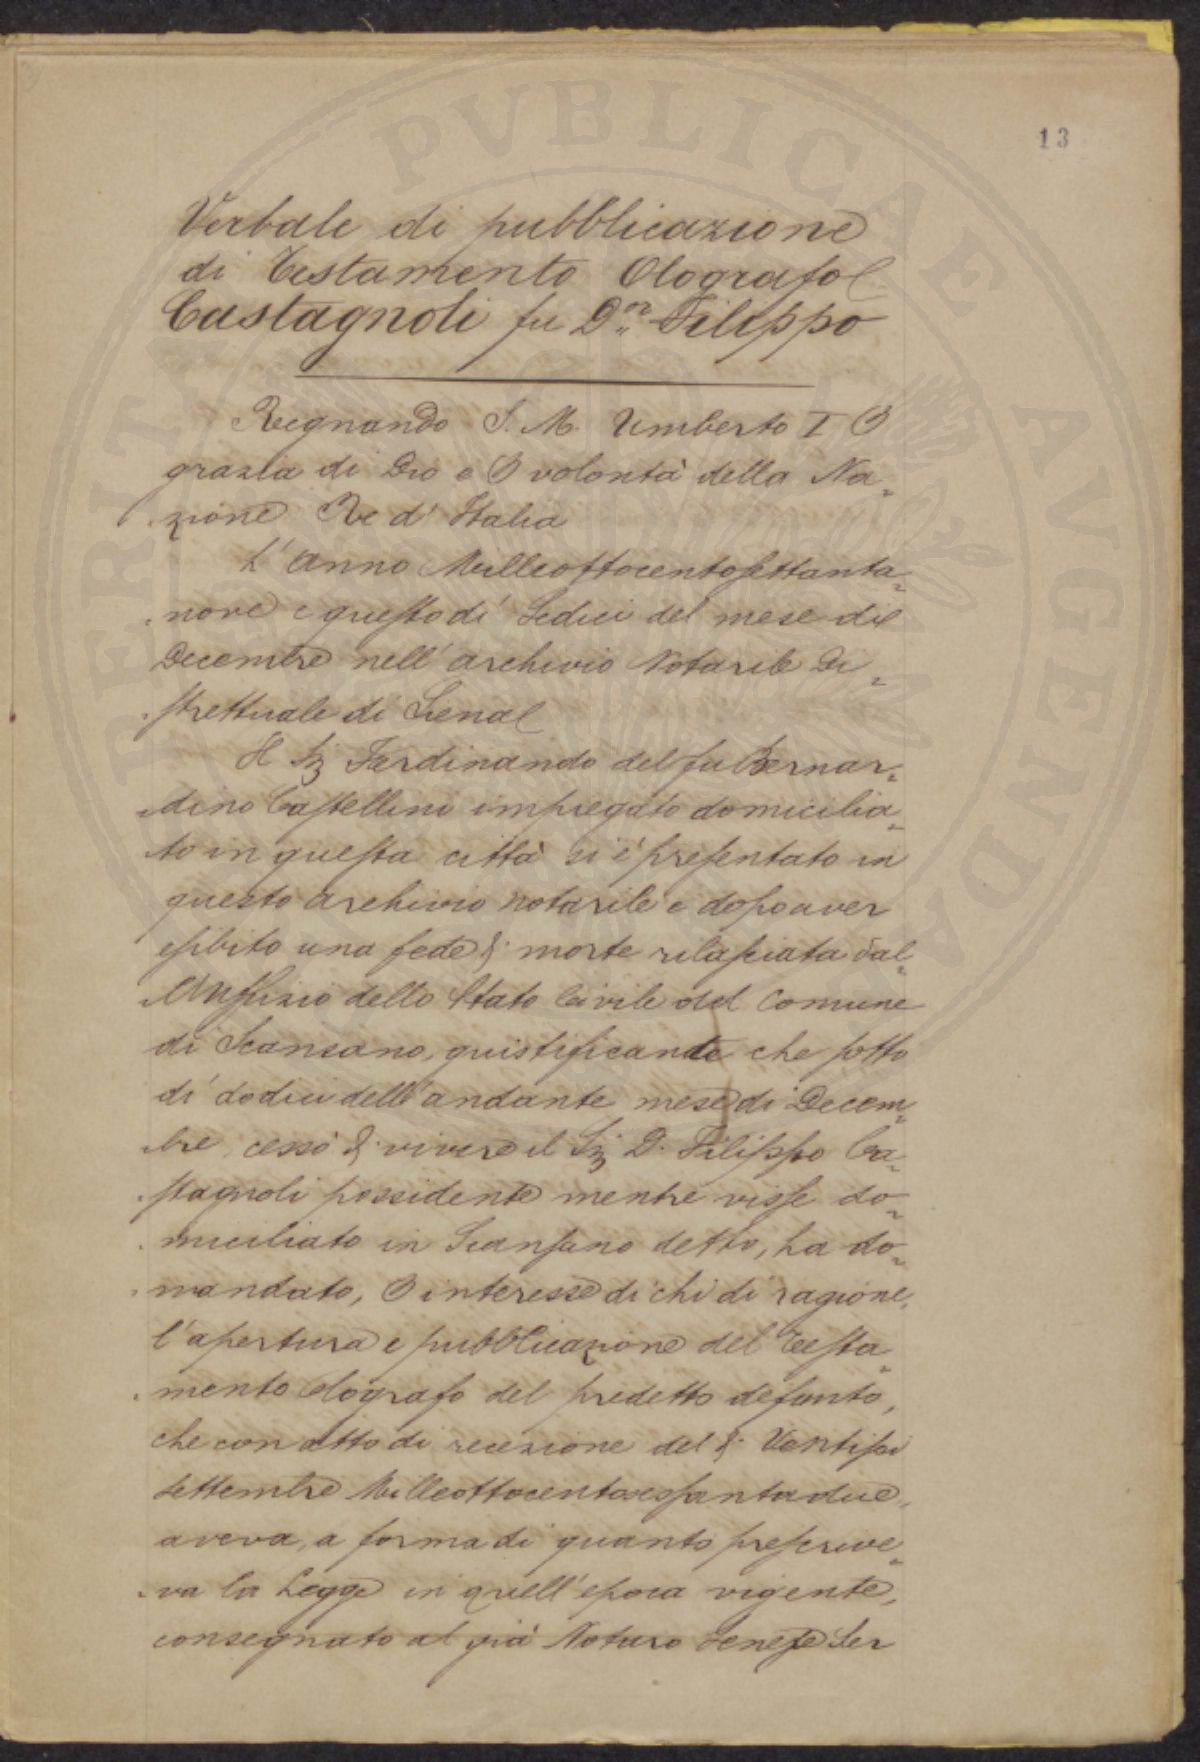 PERITAT PUBLICAE AUGENDAE
13
Verbale di pubblicazione
di Testamento Olografo
Castagnoli fu D.n Filippo
Regnando S. M. Umberto I P
grazia di Dio e P volontà della Na=
=zione Re d' Italia
L' anno Milleottocentosettanta=
=nove e questo dí Sedici del mese di
Decembre nell' archivio Notarile Di=
=strettuale di Siena
Il Sig Ferdinando del fu Bernar=
=dino Castellini impiegato domicilia=
=to in questa città si è presentato in
questo archivio notarile e dopo aver
esibito una fede di morte rilasciata dal=
=l'Uffizio dello Stato Civile del Comune
di Scansano, giustificante che sotto
dí dodici dell' andante mese di Decem=
=bre, cessò di vivere il Sig D. Filippo Ca=
=stagnoli possidente mentre visse do=
=miciliato in Scansano detto, ha do=
=mandato, P interesse di chi di ragione,
l'apertura e pubblicazione del Testa=
=mento Olografo del predetto defunto,
che con atto di recezione del dí Ventisei
Settembre Milleottocentosessantadue,
aveva, a forma di quanto prescrive=
=va la Legge in quell' epoca vigente,
consegnato al già Notaro Senese Ser